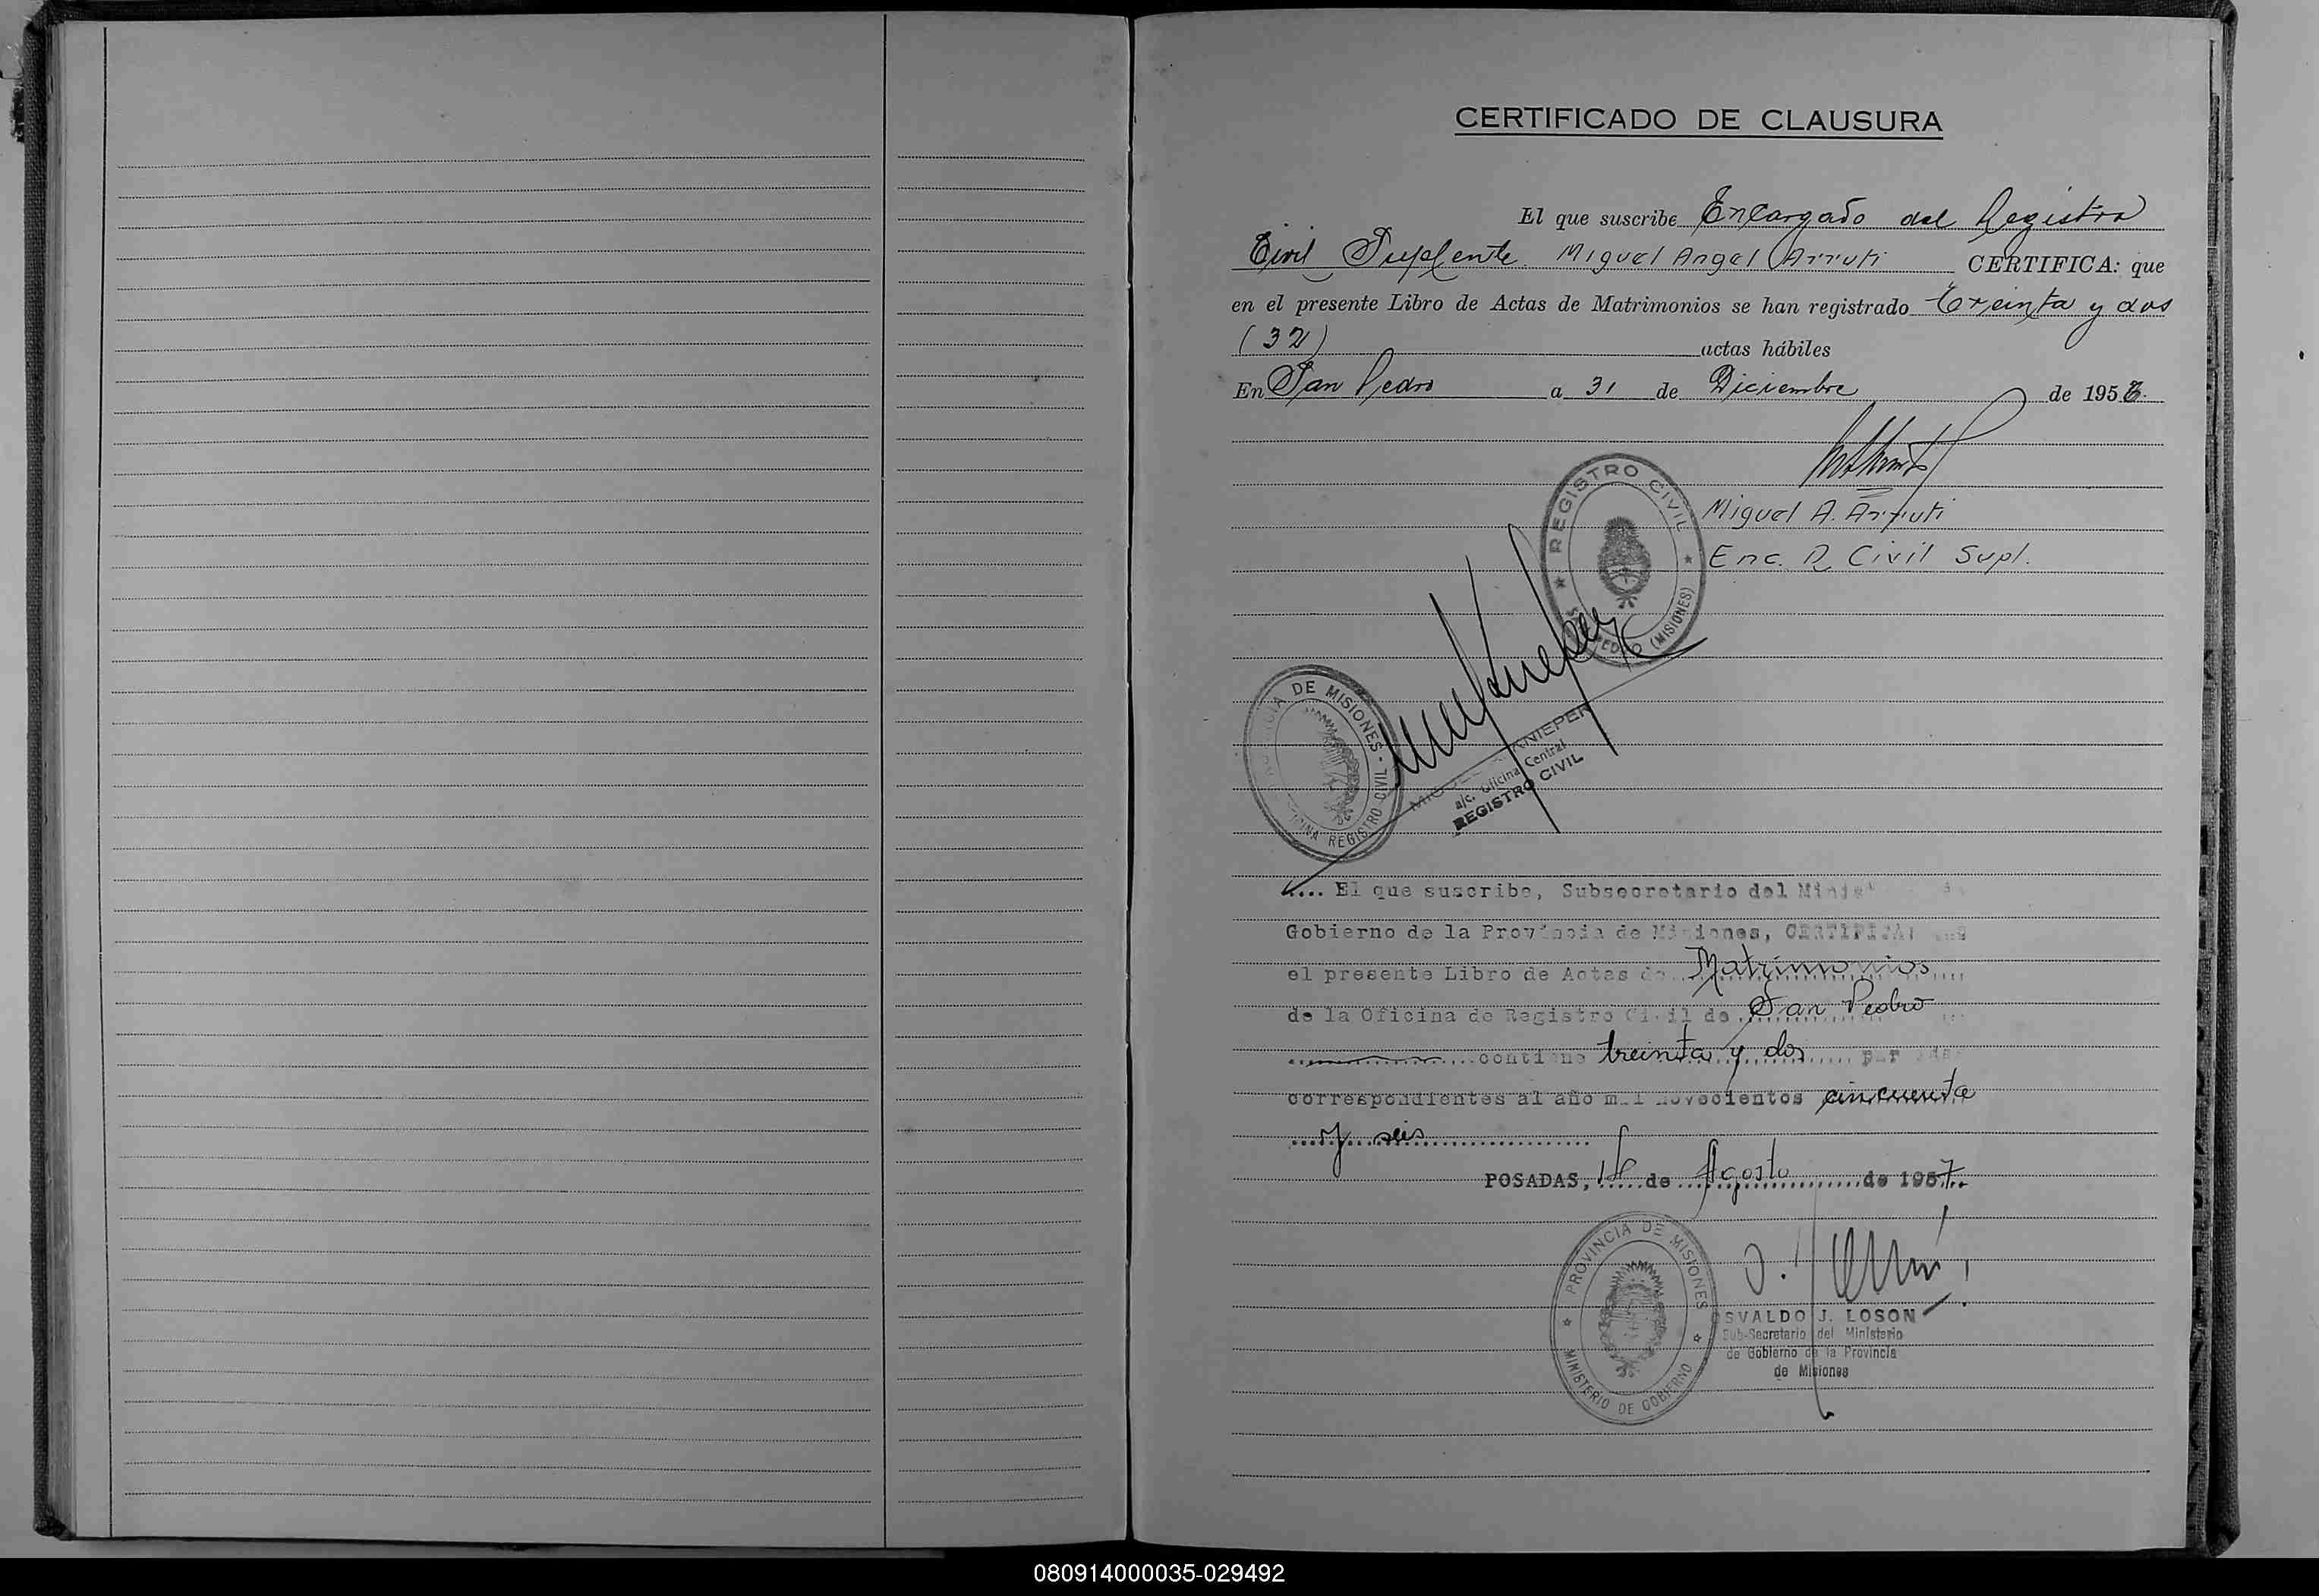 CERTIFICADO DE CLAUSURA
El que suscribe Encargado del Registro
Civil Suplente Miguel Angel Arruti CERTIFICA: que
en el presente Libro de Actas de Matrimonios se han registrado treinta y dos
(32) actas hábiles
En San Pedro a 31 de Diciembre de 1956.
REGISTRO CIVIL
(MISIONES)
Miguel A. Arruti
Enc. R. Civil Supl.
DE MISIONES - REGISTRO CIVIL
a/c. Oficina Central
REGISTRO CIVIL
.... El que suscribe, Subsecretario del
Gobierno de la Provincia de Misiones, CERTIFICA:
el presente Libro de Actas de Matrimonios
de la Oficina de Registro Civil de San Pedro
contiene treinta y dos
correspondientes al año mil novecientos cincuenta
y seis
POSADAS, 14 de Agosto de 1957.
PROVINCIA DE MISIONES
MINISTERIO DE GOBIERNO
OSVALDO J. LOSON
Sub-Secretario del Ministerio
de Gobierno de la Provincia
de Misiones
080914000035-029492